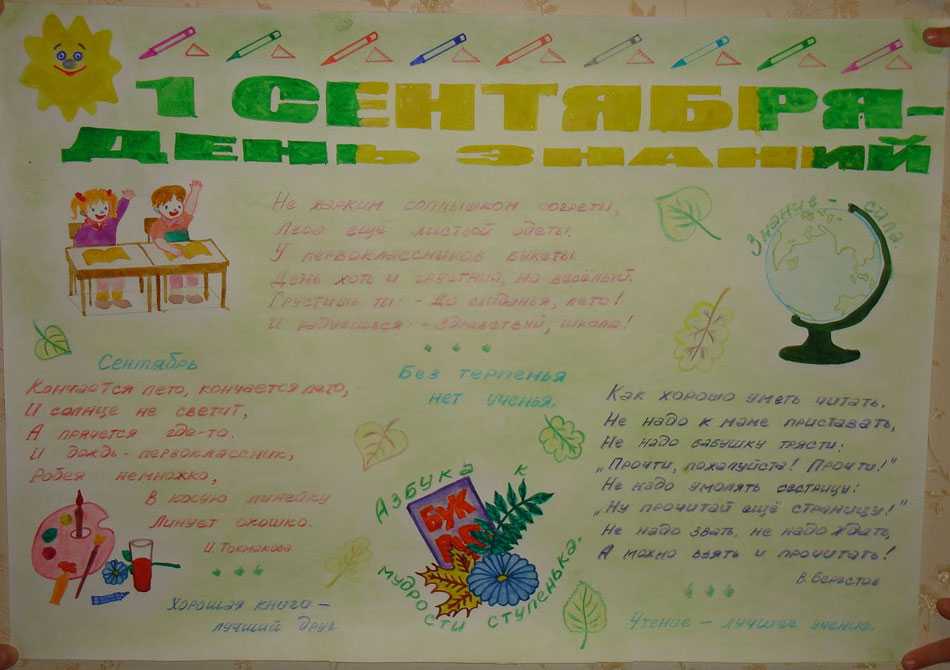 1 СЕНТЯБРЯ-
ДЕНЬ ЗНАНИЙ
Не жарким солнышком согреты,
Леса ещё листвой одеты.
У первоклассников букеты.
День хоть и грустный, но весёлый.
Грустишь ты: - До свиданья, лето!
И радуешься: - Здравствуй, школа!
Знание - сила.
Сентябрь
Кончается лето, кончается лето,
И солнце не светит,
А прячется где-то.
И дождь - первоклассник,
Робея немножко,
В косую линейку
Линует окошко.
И. Токмакова
Хорошая книга -
лучший друг
Без терпенья
нет ученья.
Азбука к
мудрости ступенька.
БУК
Как хорошо уметь читать.
Не надо к маме приставать,
Не надо бабушку трясти:
„Прочти, пожалуйста! Прочти!"
Не надо умолять сестрицу:
„Ну прочитай ещё страницу!"
Не надо звать, не надо ждать,
А можно взять и прочитать!
В. Берестов
Чтение - лучшее учение.